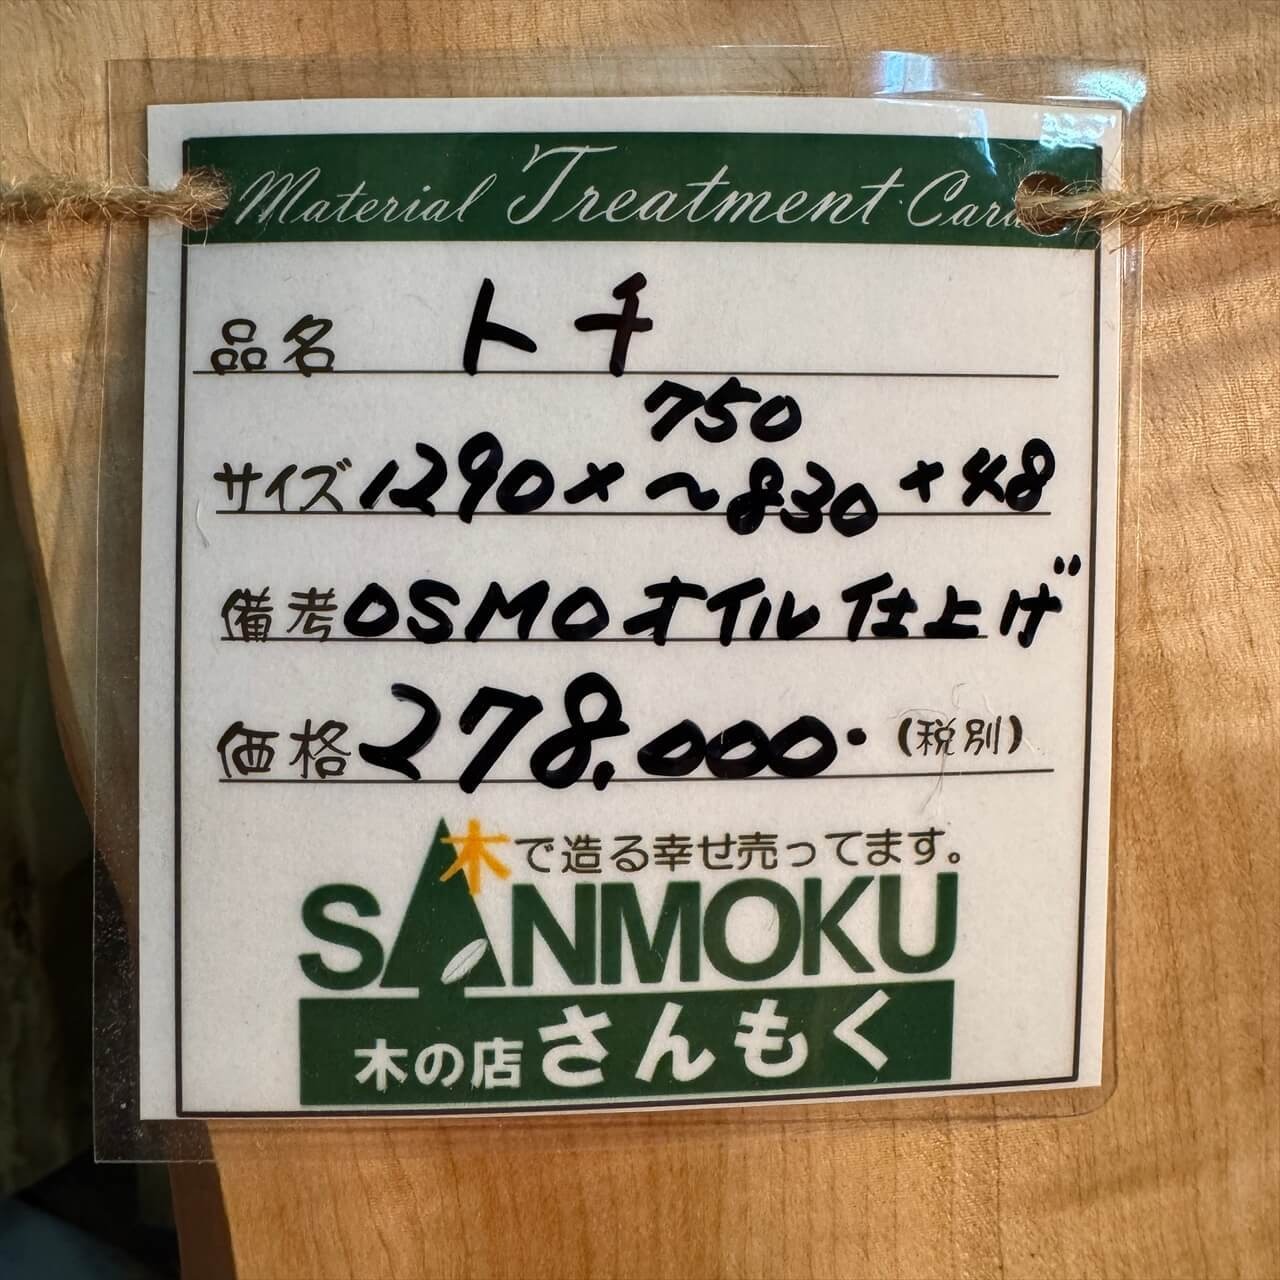 Material Treatment Card
品名 トチ
750
サイズ 1290×〜830×48
備考 OSMOオイル仕上げ
価格 278,000. (税別)
木で造る幸せ売ってます。
SANMOKU
木の店 さんもく